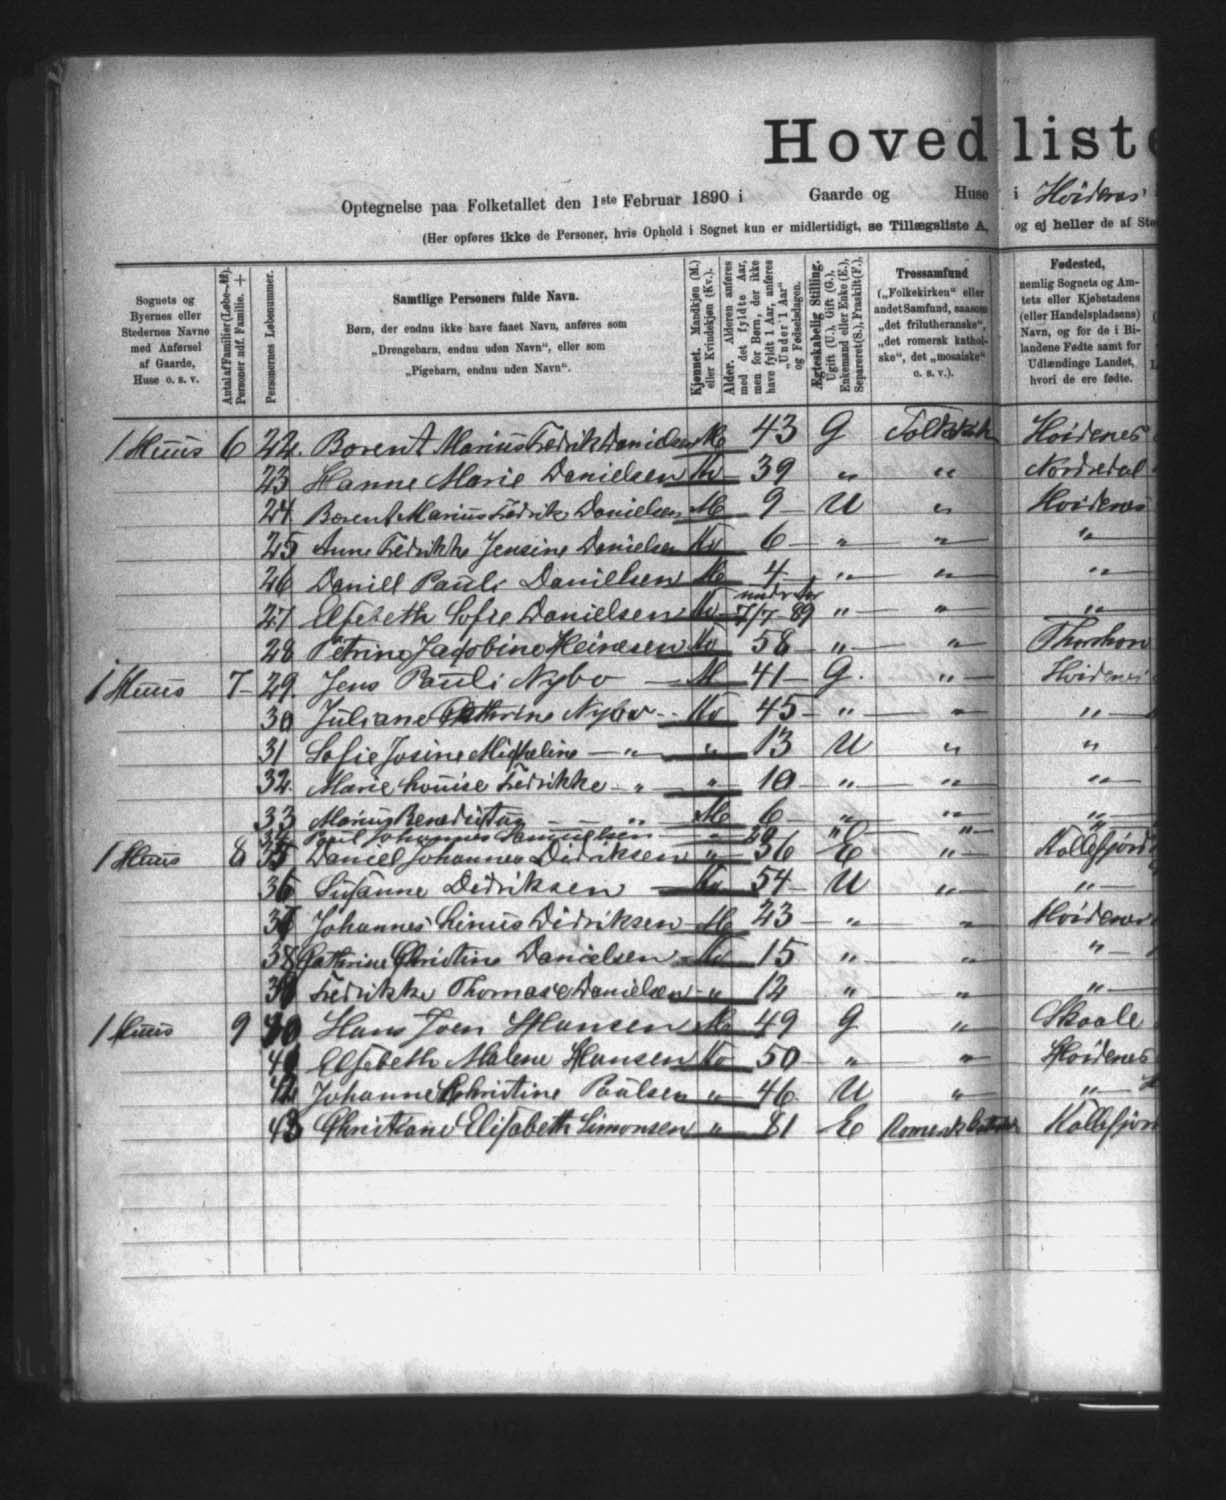 Hovedliste
Optegnelse paa Folketallet den 1ste Februar 1890 i Gaarde og Huse i Hvidenæs
(Her opføres ikke de Personer, hvis Ophold i Sognet kun er midlertidigt, se Tillægsliste A, og ej heller de af
Sognets og Byernes eller Stedernes Navne med Anførsel af Gaarde, Huse o. s. v.
Antal af Familier (Løbe-№). Personer udf. Familie. +
Personernes Løbenummer.
Samtlige Personers fulde Navn.
Børn, der endnu ikke have faaet Navn, anføres som
„Drengebarn, endnu uden Navn", eller som
„Pigebarn, endnu uden Navn".
Kjønnet. Mandkjøn (M.) eller Kvindekjøn (Kv.).
Alder. Alderen anføres med det fyldte Aar, men for Børn, der ikke have fyldt 1 Aar, anføres „Under 1 Aar" og Fødselsdagen.
Ægteskabelig Stilling. Ugift (U.), Gift (G.), Enkemand eller Enke (E.), Separeret (S.), Fraskilt (F.).
Trossamfund
(„Folkekirken" eller andet Samfund, saasom „det frilutheranske", „det romersk katholske", det „mosaiske" o. s. v.).
Fødested,
nemlig Sognets og Amtets eller Kjøbstadens (eller Handelspladsens) Navn, og for de i Bilandene Fødte samt for Udlændinge Landet, hvori de ere fødte.
1 Huus 6 22. Borent Marius Fredrik Danielsen M 43 G Folkekirk Hvidenes
23 Hanne Marie Danielsen Kv 39 " " Nordredal
24 Borent Marius Fredrik Danielsen M 9 U " Hvidenæs
25 Anne Fredrikke Jensine Danielsen Kv 6 " " "
26 Daniel Pauli Danielsen M 4 " " "
27 Elsebeth Sofie Danielsen Kv under 1 Aar 7/7 89 " " "
28 Petrine Jacobine Heinesen Kv 58 " " Thorshavn
1 Huus 7 29. Jens Pauli Nybo M 41 G. " Hvidenes
30 Juliane Cathrine Nybo Kv 45 " " "
31 Sofie Josine Michaline " " 13 U " "
32. Marie Louise Fredrikke " " 10 " " "
33 Marius Benedictus " M 6 " " "
34 Poul Johannes Samuelsen " 29 " " "
1 Huus 8 35 Daniel Johannes Didriksen " 56 E " Kollefjord
36 Susanne Didriksen Kv 54 U " "
37 Johannes Linus Didriksen M 23 " " Hvidenæs
38 Cathrine Christine Danielsen Kv 15 " " "
39 Fredrikke Thomasie Danielsen " 12 " " "
1 Huus 9 40 Hans Joen Hansen M 49 G " Skaale
41 Elsebeth Malene Hansen Kv 50 " " Hvidenes
42 Johanne Christine Paulsen " 46 U " "
43 Christiane Elisabeth Simonsen " 81 E Romersk Katholsk Kollefjor